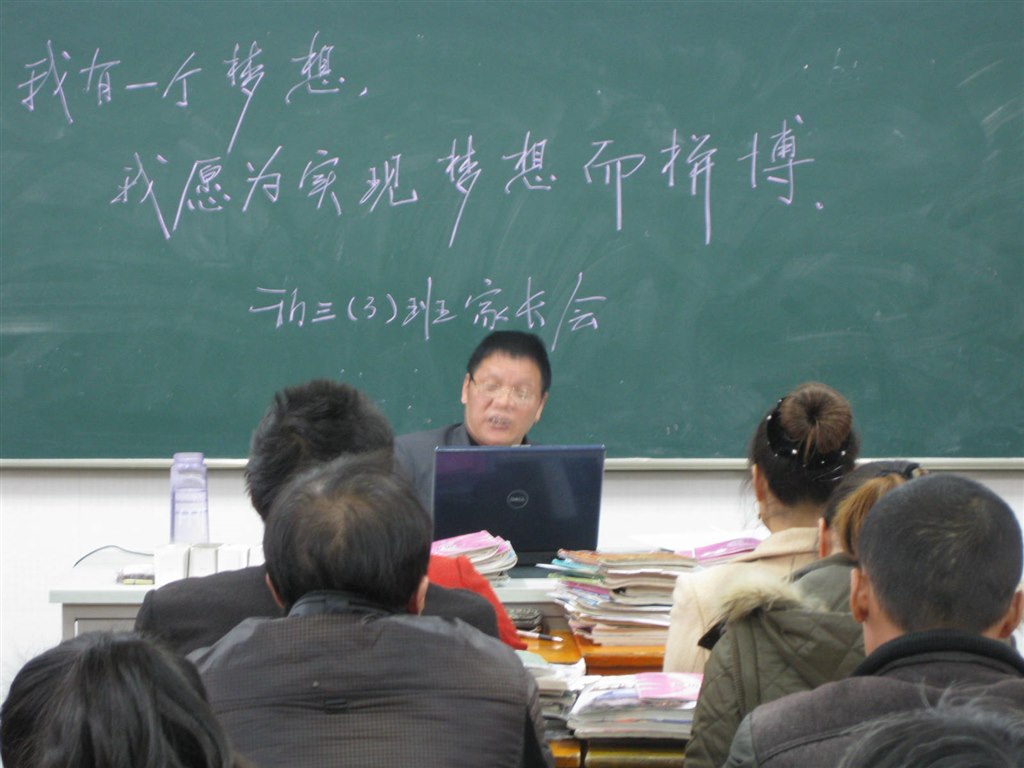 我有一个梦想，
我愿为实现梦想而拼博.
初三(3)班家长会
DELL